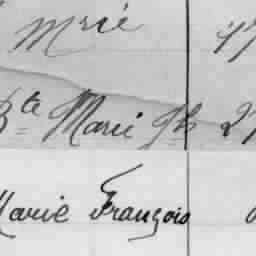 Mrie 17
Bte Marie Jh 27
Marie François